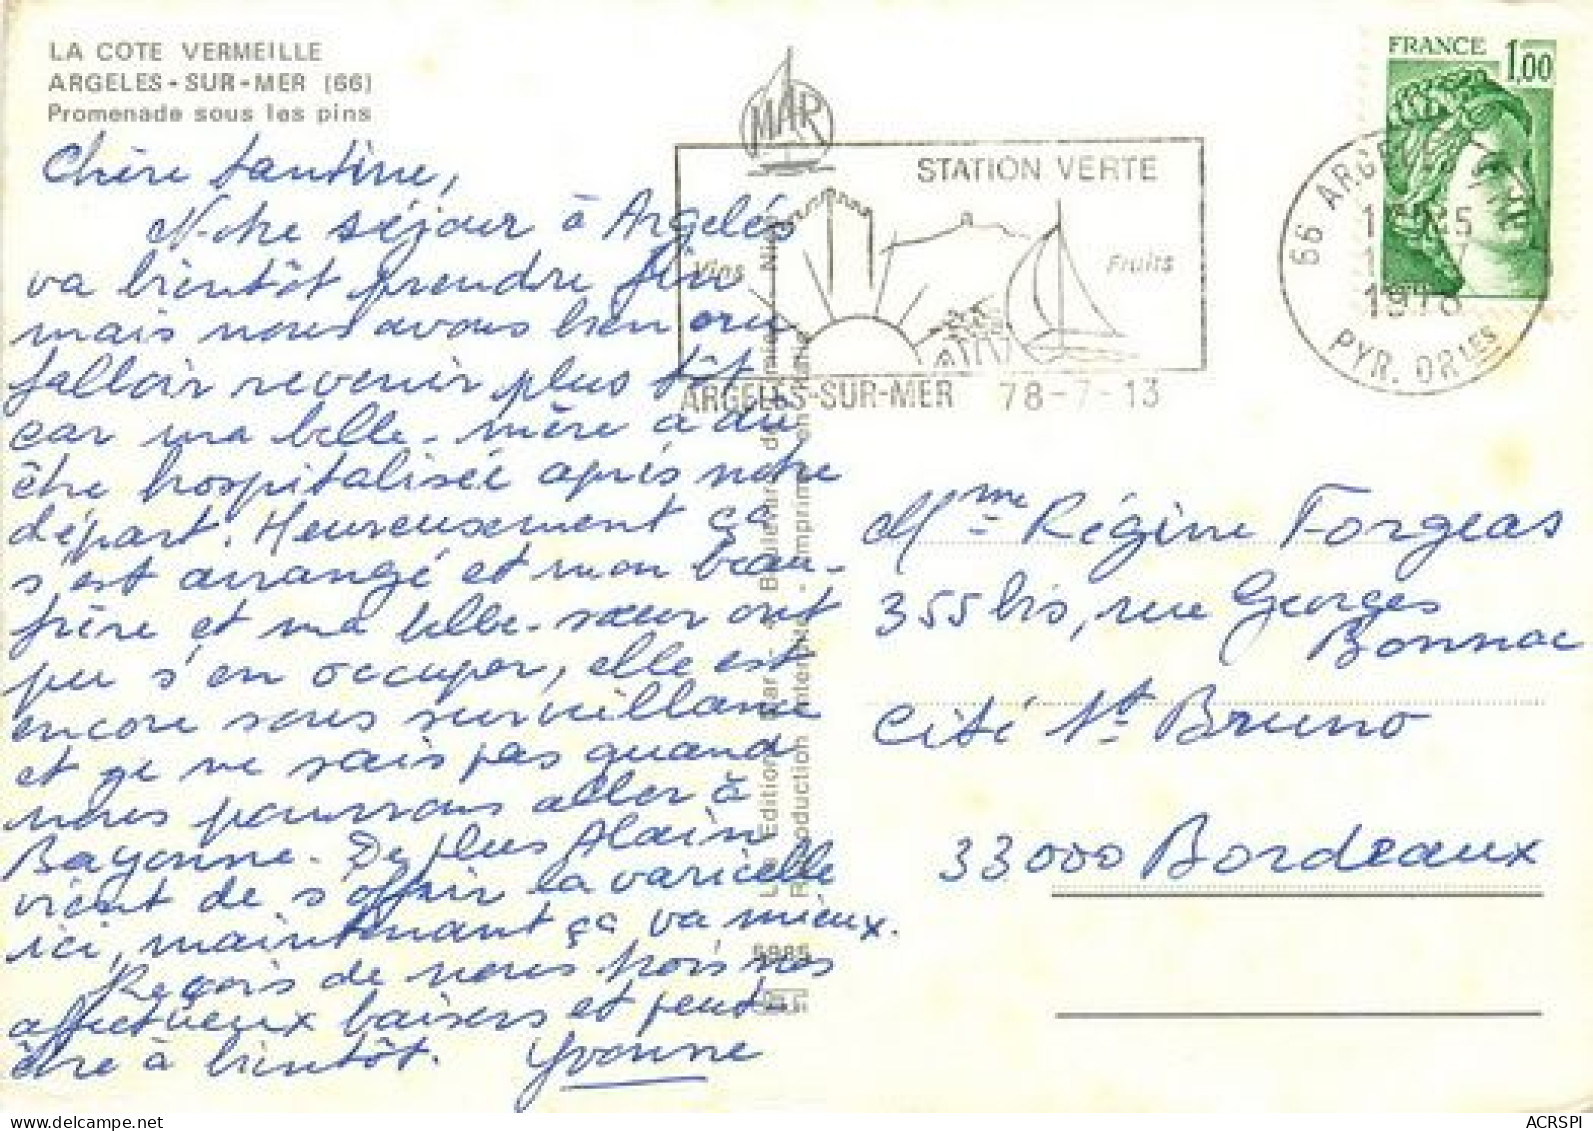 LA COTE VERMEILLE
ARGELES-SUR-MER (66)
Promenade sous les pins
Chère tantine,
Notre séjour à Argelés
va bientôt prendre fin
mais nous avons bien cru
falloir revenir plus tôt
car ma belle-mère a du
être hospitalisée après notre
départ. Heureusement ça
s'est arrangé et mon beau-
frère et ma belle-sœur ont
pu s'en occuper, elle est
encore sous surveillance
et je ne sais pas quand
nous pourrons aller à
Bayonne. De plus Alain
vient de s'offrir la varicelle
ici, maintenant ça va mieux.
Reçois de nous trois nos
affectueux baisers et peut-
être à bientôt. Yvonne
MAR
STATION VERTE
Vins
Fruits
ARGELES-SUR-MER 78-7-13
FRANCE 1,00
66 ARGELES
1978
PYR. ORLES
Mme Régine Forgeas
355 bis, rue Georges
Bonnac
Cité St Bruno
33000 Bordeaux
5985
ACRSPI